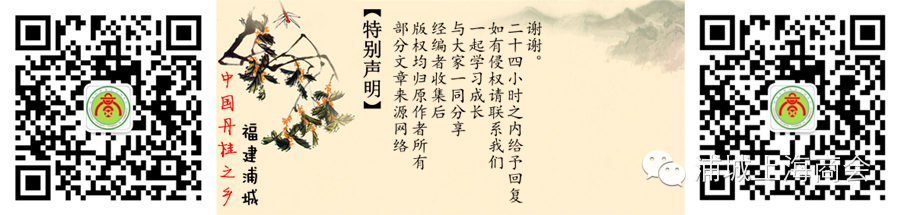 中国丹桂之乡
福建浦城
【特别声明】
部分文章来源网络
版权均归原作者所有
经编者收集后
与大家一同分享
一起学习成长
如有侵权请联系我们
二十四小时之内给予回复
谢谢。
浦城上海商会